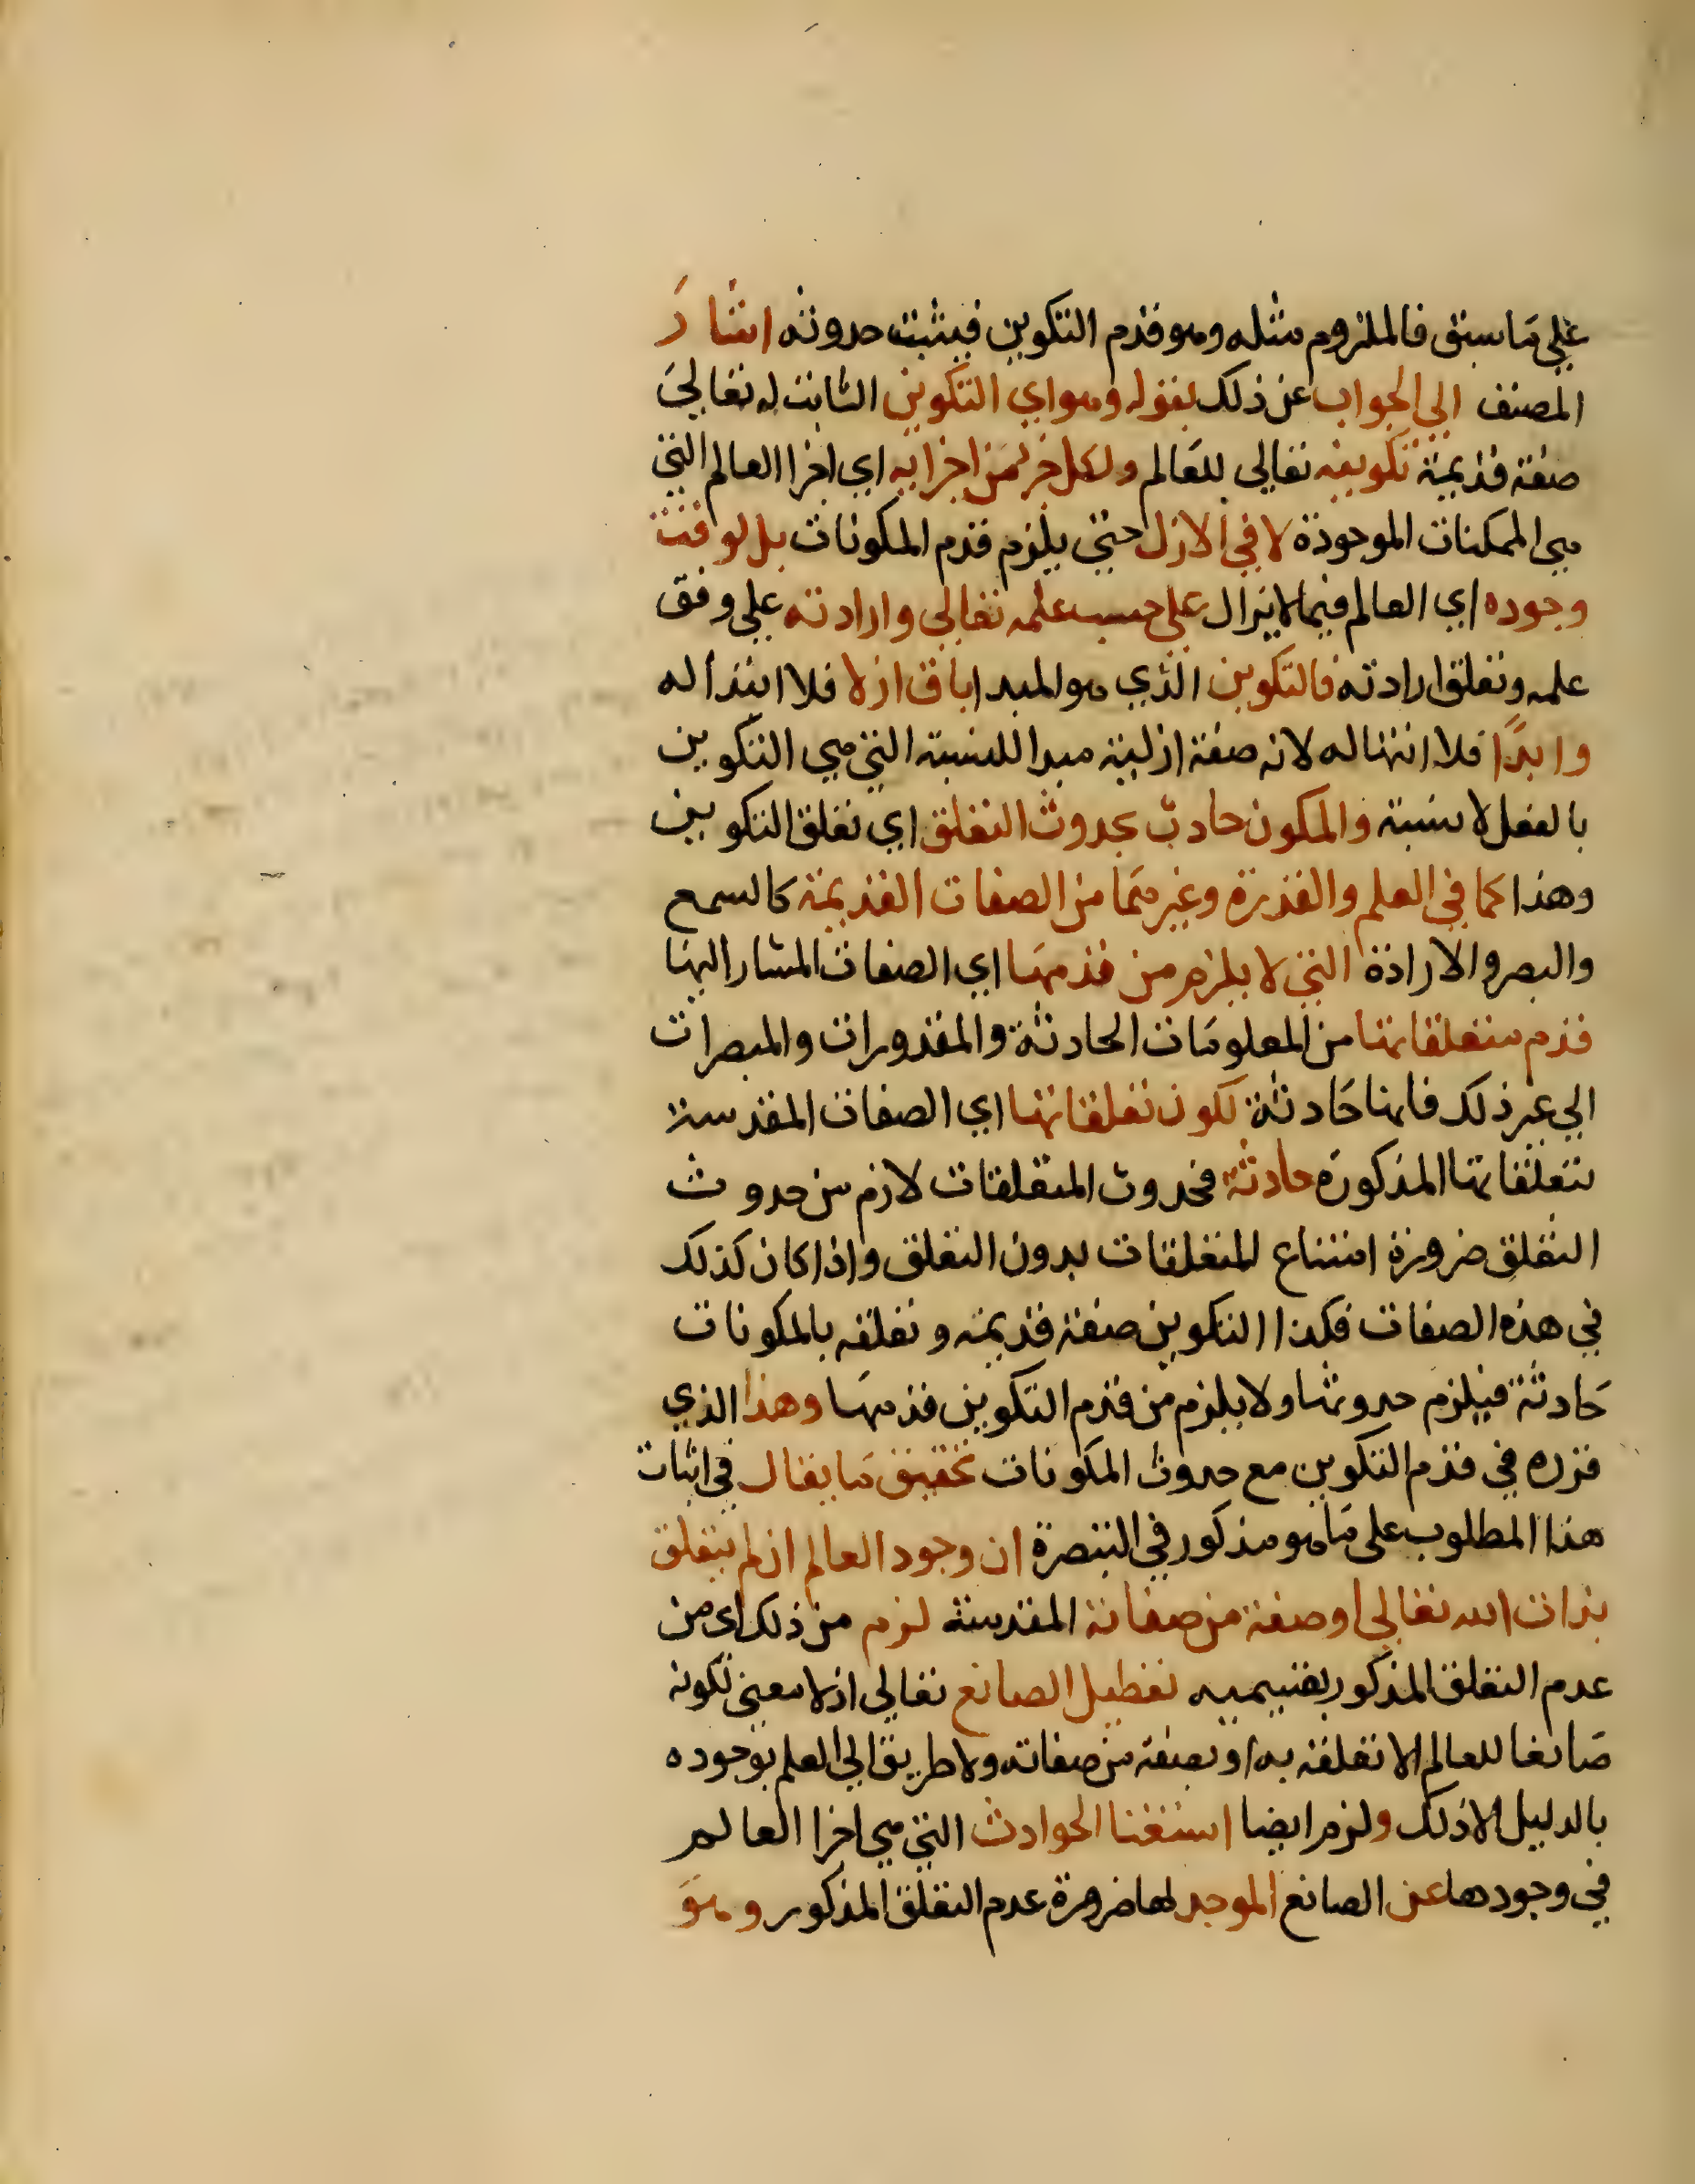 علي ما سبق فالملزوم مثله وهو قدم التكوين فيثبت حدوثه اشار
المصنف الي الجواب عن ذلك بقوله وهو اي التكوين الثابت له تعالي
صفة قديمة تكوينه تعالي للعالم ولكل جزء من اجزايه اي اجزا العالم التي
هي الممكنات الموجودة لا في الازل حتي يلزم قدم المكونات بل لوقت
وجوده اي العالم فيما لا يزال علي حسب علمه تعالي وارادته علي وفق
علمه وتعلق ارادته فالتكوين الذي هو المبدا باق ازلا فلا ابتدأ له
وابدًا فلا انتها له لانه صفة ازلية مبدا للنسبة التي هي التكوين
بالفعل لا نسبة والمكون حادث بحدوث التعلق اي تعلق التكوين
وهذا كما في العلم والقدرة وغيرهما من الصفات القديمة كالسمع
والبصر والارادة التي لا يلزم من قدمها اي الصفات المشار اليها
قدم متعلقاتها من المعلومات الحادثة والمقدورات والمبصرات
الي غير ذلك فانها حادثة لكون تعلقاتها اي الصفات المقدسة
بتعلقاتها المذكورة حادثة فحدوث المتعلقات لازم من حدوث
التعلق ضرورة امتناع المتعلقات بدون التعلق واذا كان كذلك
في هذه الصفات فكذا التكوين صفة قديمة وتعلقه بالمكونات
حادثة فيلزم حدوثها ولا يلزم من قدم التكوين قدمها وهذا الذي
قرره في قدم التكوين مع حدوث المكونات تحقيق ما يقال في اثبات
هذا المطلوب على ما هو مذكور في التبصرة ان وجود العالم ان لم يتعلق
بذات الله تعالي او صفة من صفاته المقدسة لزم من ذلك اي من
عدم التعلق المذكور بقسيميه تعطيل الصانع تعالي اذ لا معني لكونه
صانعا للعالم الا تعلقه به او بصفة من صفاته ولا طريق الي العلم بوجوده
بالدليل الا ذلك ولزم ايضا استغنا الحوادث التي هي اجزا العالم
في وجودها عن الصانع الموجد لها ضرورة عدم التعلق المذكور وهو